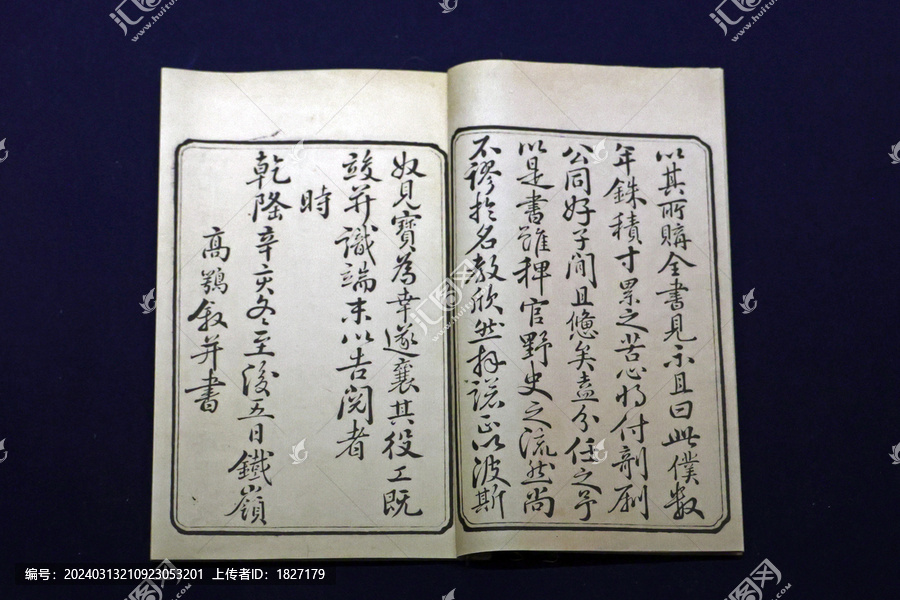 以其所購全書見示且曰此僕數
年銖積寸累之苦心將付剞劂
公同好子閒且憊矣盍分任之予
以是書雖稗官野史之流然尚
不謬於名教欣然拜諾正以波斯
奴見寶為幸遂襄其役工既
竣并識端末以告閱者
時
乾隆辛亥冬至後五日鐵嶺
高鶚敘并書
编号：20240313210923053201 上传者ID：1827179